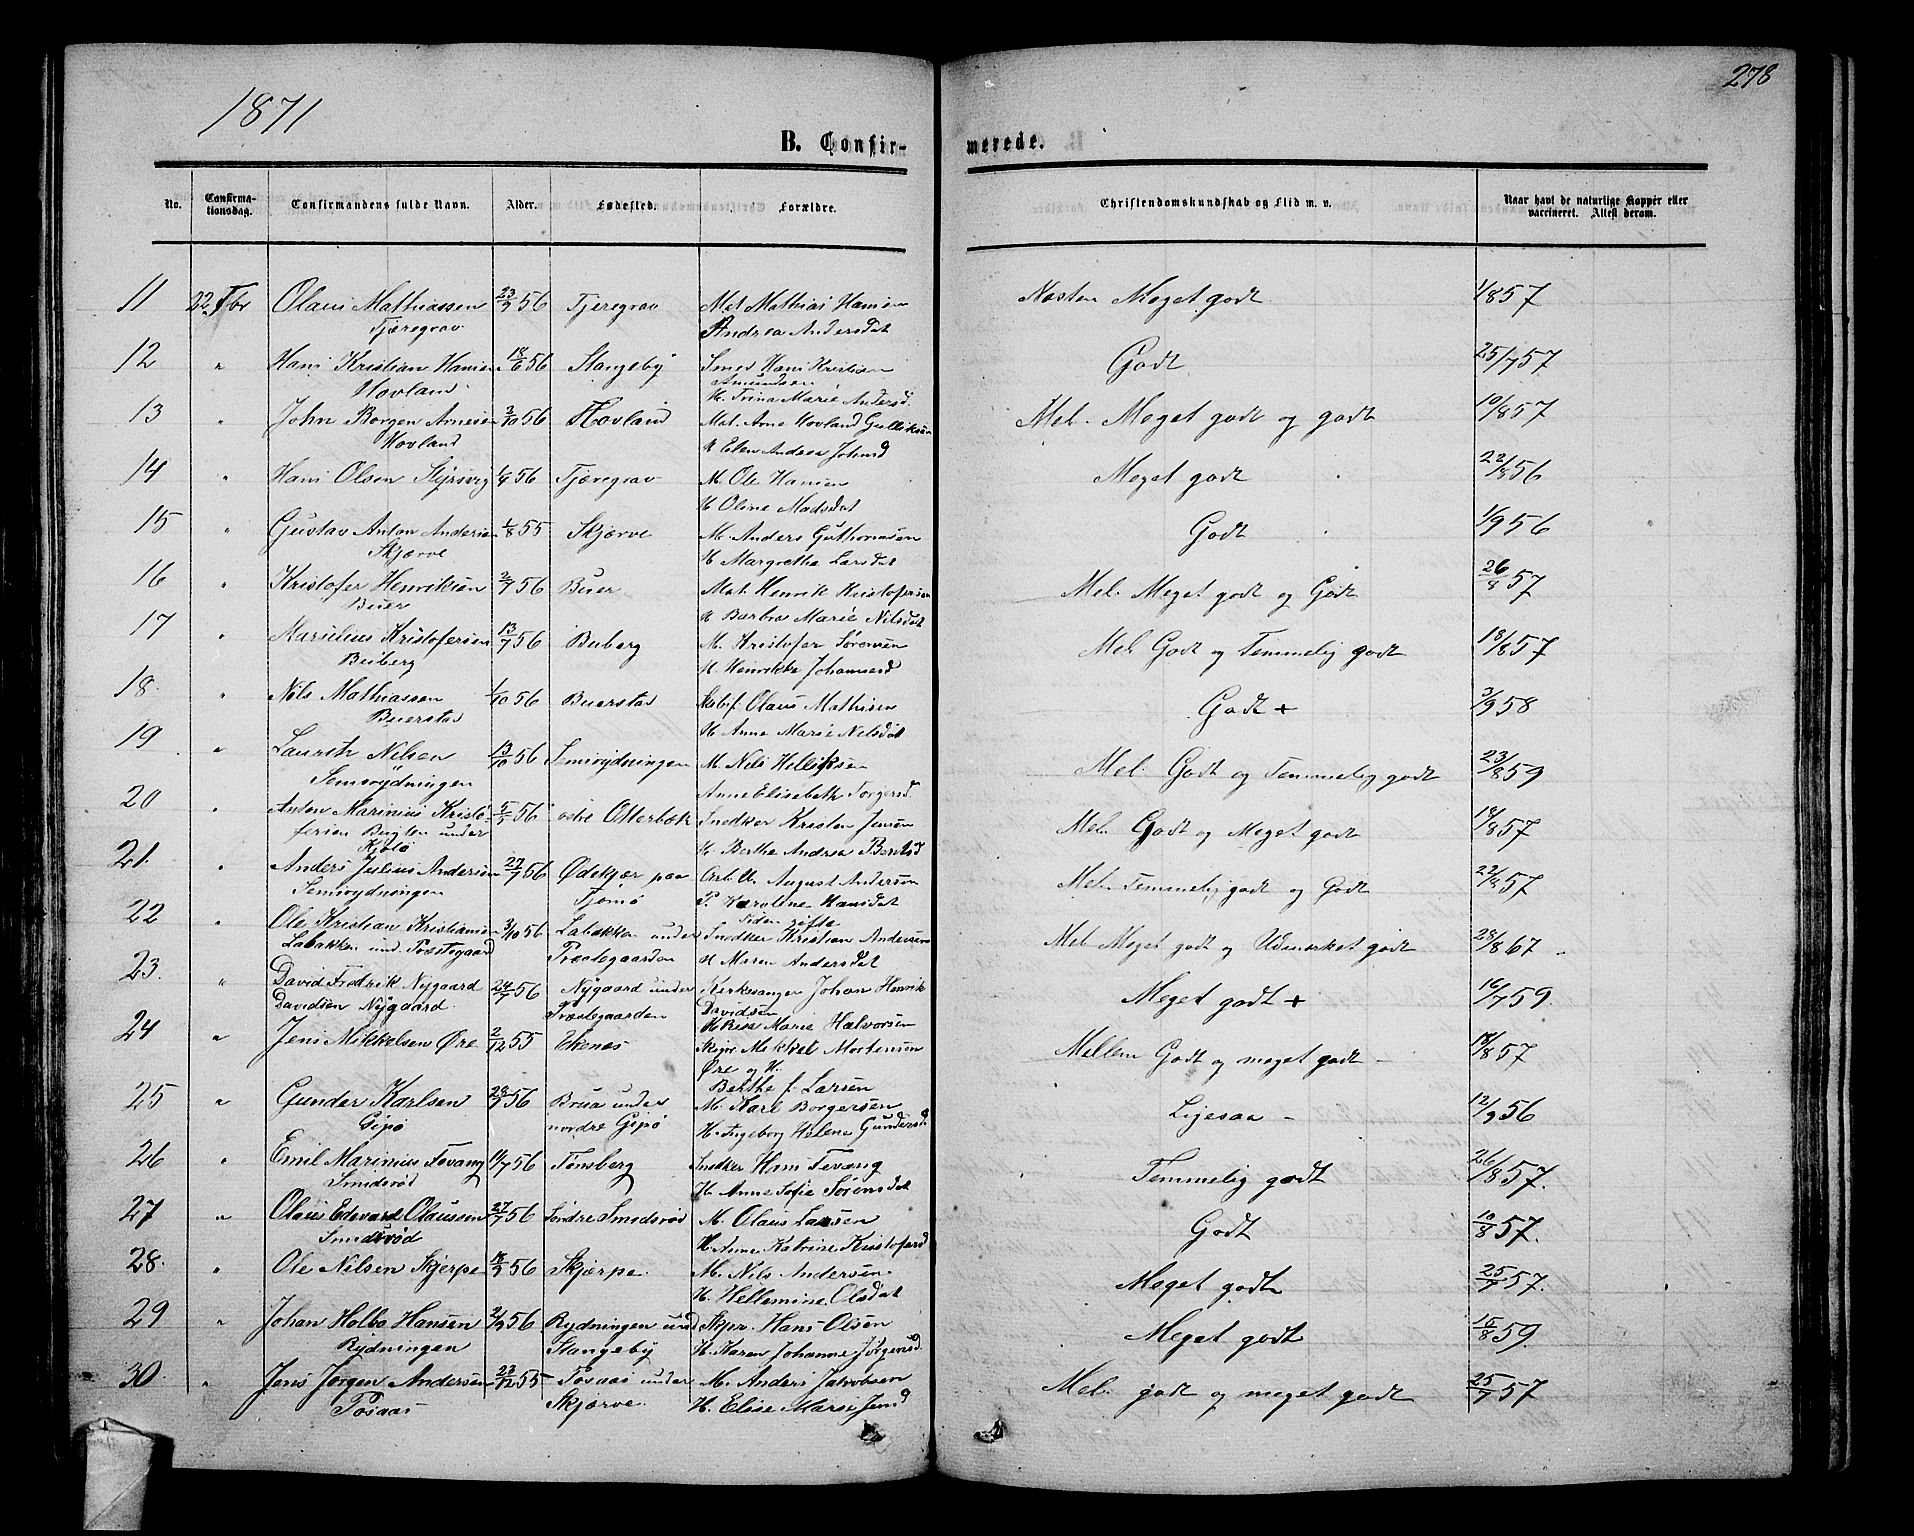 1871
278
B. Confirmerede.
No. Confirmationsdag. Confirmandens fulde Navn. Alder. Fødested. Forældre. Christendomskundskab og Flid m. v. Naar havt de naturlige Kopper eller vaccineret. Attest derom.
11 22 Olaus Mathiassen 23/9 56 Tjeregrav Mat. Mathias Hansen Næsten Meget godt 1/8 57
Tjæregrav Andrea Andersdat
12 " Hans Kristian Hansen 18/6 56 Stangeby Smed Hans Kristian Godt 25/7 57
Hovland Amundsen
H. Trina Marie Andersd.
13 John Borgen Arnesen 3/10 56 Hovland Mat. Arne Hovland Gulliksen Mel. Meget godt og godt 10/8 57
Hovland H Elen Andrea Johnsd
14 " Hans Olsen Styrsvig 56 Tjæregrav M. Ole Hansen Meget godt 22/8 56
H Oline Madsdat
15 " Gustav Anton Andersen 1/8 55 Skjærve M. Anders Guthormsen Godt 1/9 56
Skjærve H Margrethe Larsdat
16 " Kristofer Henriksen 2/7 56 Buer Mat. Henrik Kristofersen Mel. Meget godt og Godt 26/8 57
Buer H Barbra Marie Nilsdat
17 " Marulius Kristofersen 13/7 56 Buberg M. Kristofer Sørensen Mel Godt og Temmelig godt 18/8 57
Buberg H. Henrikke Johansend
18. " Nils Mathiassen 1/10 56 Buerstad Olaus Mathisen Godt + 3/9 58
Buerstad H Anne Marie Nilsdat
19 " Lauritz Nilsen 13/10 56 Semsrydningen M. Nils Helliksen Mel. Godt og Temmelig godt 23/8 59
Semsrydningen Anne Elisabeth Torgersd
20 " Anton Marinius Kristo- 5/5 56 østre Otterbæk Snedker Kristen Jensen Mel. Godt og Meget godt 14/8 57
fersen under
Kjølø H Berthe Andrea Berntsd
21. " Anders Julius Andersen 27/7 56 Ødekjær paa August Andersen Mel. Temmelig godt og Godt 22/8 57
Semsrydningen Tjømø P. Karoline Hansdat
siden gifte
22 " Ole Kristian Kristiansen 3/10 56 Labakken under Snedker Kristian Andersen Mel Meget godt og Udmerket godt 28/8 67
Labakken und. Præstegaard Præstegaarden H Maren Andersdat
23. " David Fredrik Nygaard 24/7 56 Nygaard under Kirkesanger Johan Henrik Meget godt + 16/7 59.
Davidsen Nygaard. Præstegaarden Davidsen
H. Marie Halvorsen
24 " Jens Mikkelsen Øre 2/12 55 Ekenes Skipr Mikkel Mortensen Mellem Godt og meget godt - 18/8 57
Øre og H.
Berthe f. Larsen
25 " Gunder Karlsen 28/9 56 Brua under M. Karl Borgersen Ligesaa - 12/9 56
Gipø nordre Gipø H. Ingeborg Helene Gundersd.
26 " Emil Marinius Tovang 11/7 56 Tønsberg Snedker Hans Tevang Temmelig godt 26/8 57.
Smidsrød H. Anne Sofie Sørensdat
27 " Olaus Edevard Olaussen 27/7 56 Søndre Smidsrød M. Olaus Larsen Godt 10/8 57.
Smidsrød H. Anne Katrine Kristofersd
28. " Ole Nilsen Skjerpe 18/9 56 Skjærpe. M. Nils Andersen. Meget godt 25/7 57.
H. Hellemine Olsdat
29 " Johan Holbo Hansen 2/9 56 Rydningen und Skpr. Hans Olsen Meget godt 18/8 59.
Rydningen Stangeby H. Karen Johanne Jørgensd.
30 " Jens Jørgen Andersen 23/12 55 Posaas under M. Anders Jakobsen Mel. godt og meget godt 25/7 57
Posaas Skjærve. H. Elise Marie Jensd